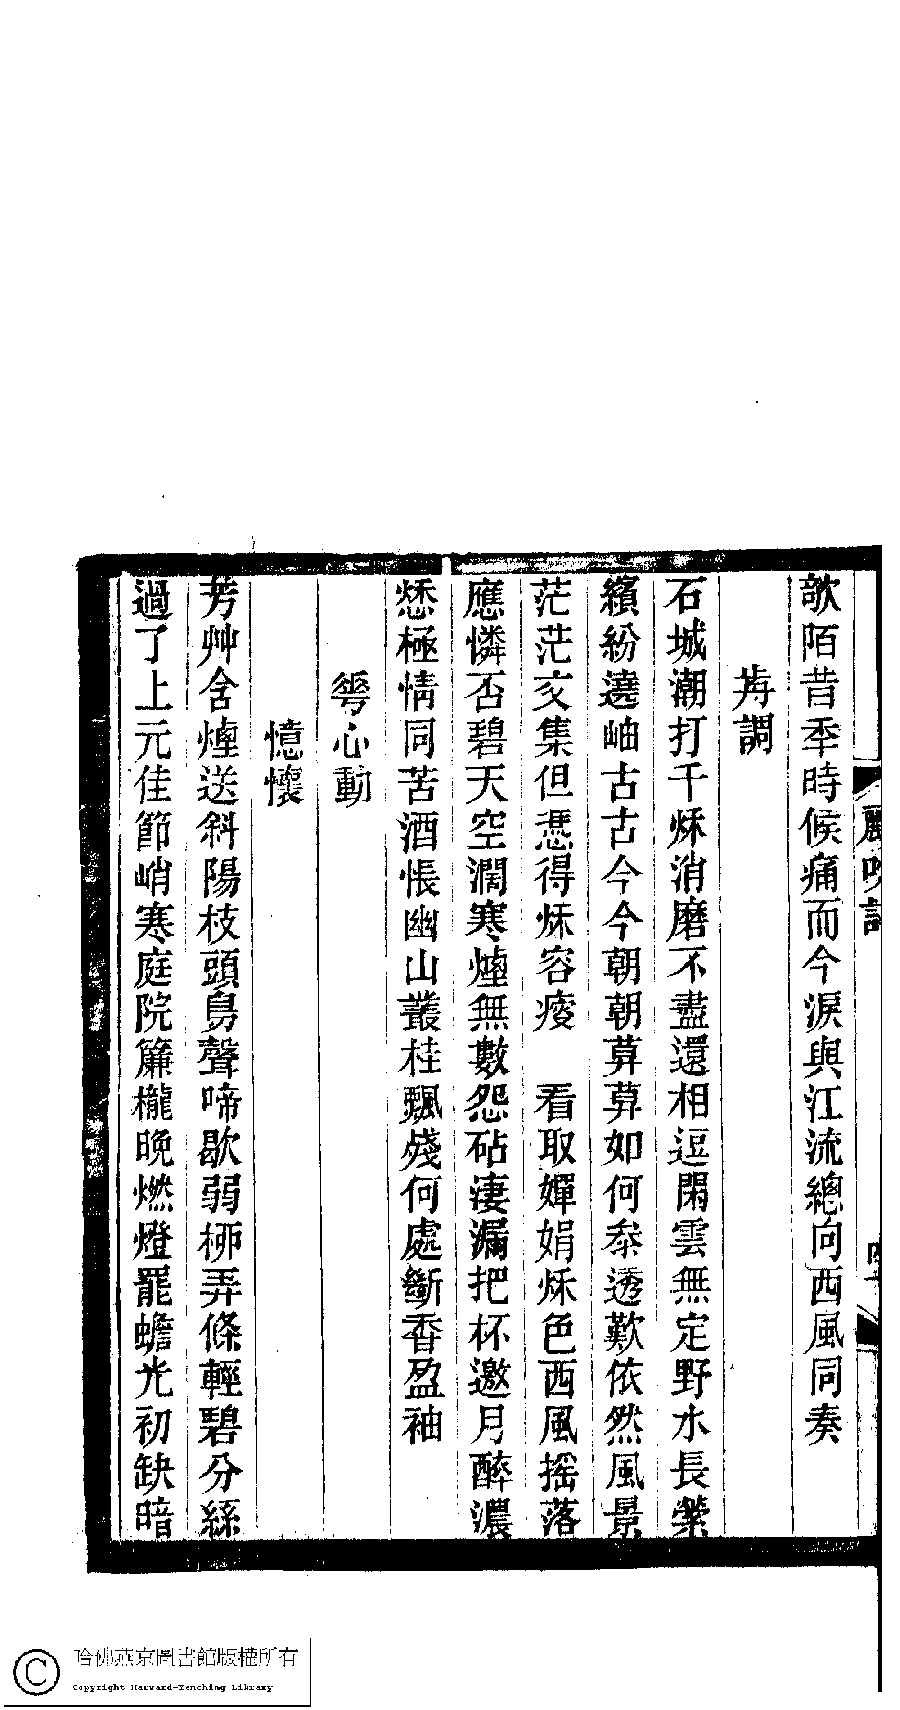 歌陌昔季時候痛而今淚與江流總向西風同奏
前調
石城潮打千秌消磨不盡還相逗閑雲無定野水長縈
繽紛遶岫古古今今朝朝莫莫如何叅透歎依然風景
茫茫交集但慿得秌容瘦　看取嬋娟秌色西風摇落
應憐否碧天空濶寒煙無數怨砧淒漏把杯邀月醉濃
愁極情同苦酒悵幽山叢桂飄殘何處斷香盈袖
花心動
憶懷
芳艸含煙送斜陽枝頭鳥聲啼歇弱栁弄條輕碧分絲
過了上元佳節峭寒庭院簾櫳晚燃燈罷蟾光初缺暗
哈佛燕京圖書館版權所有
Copyright Harvard-Yenching Library